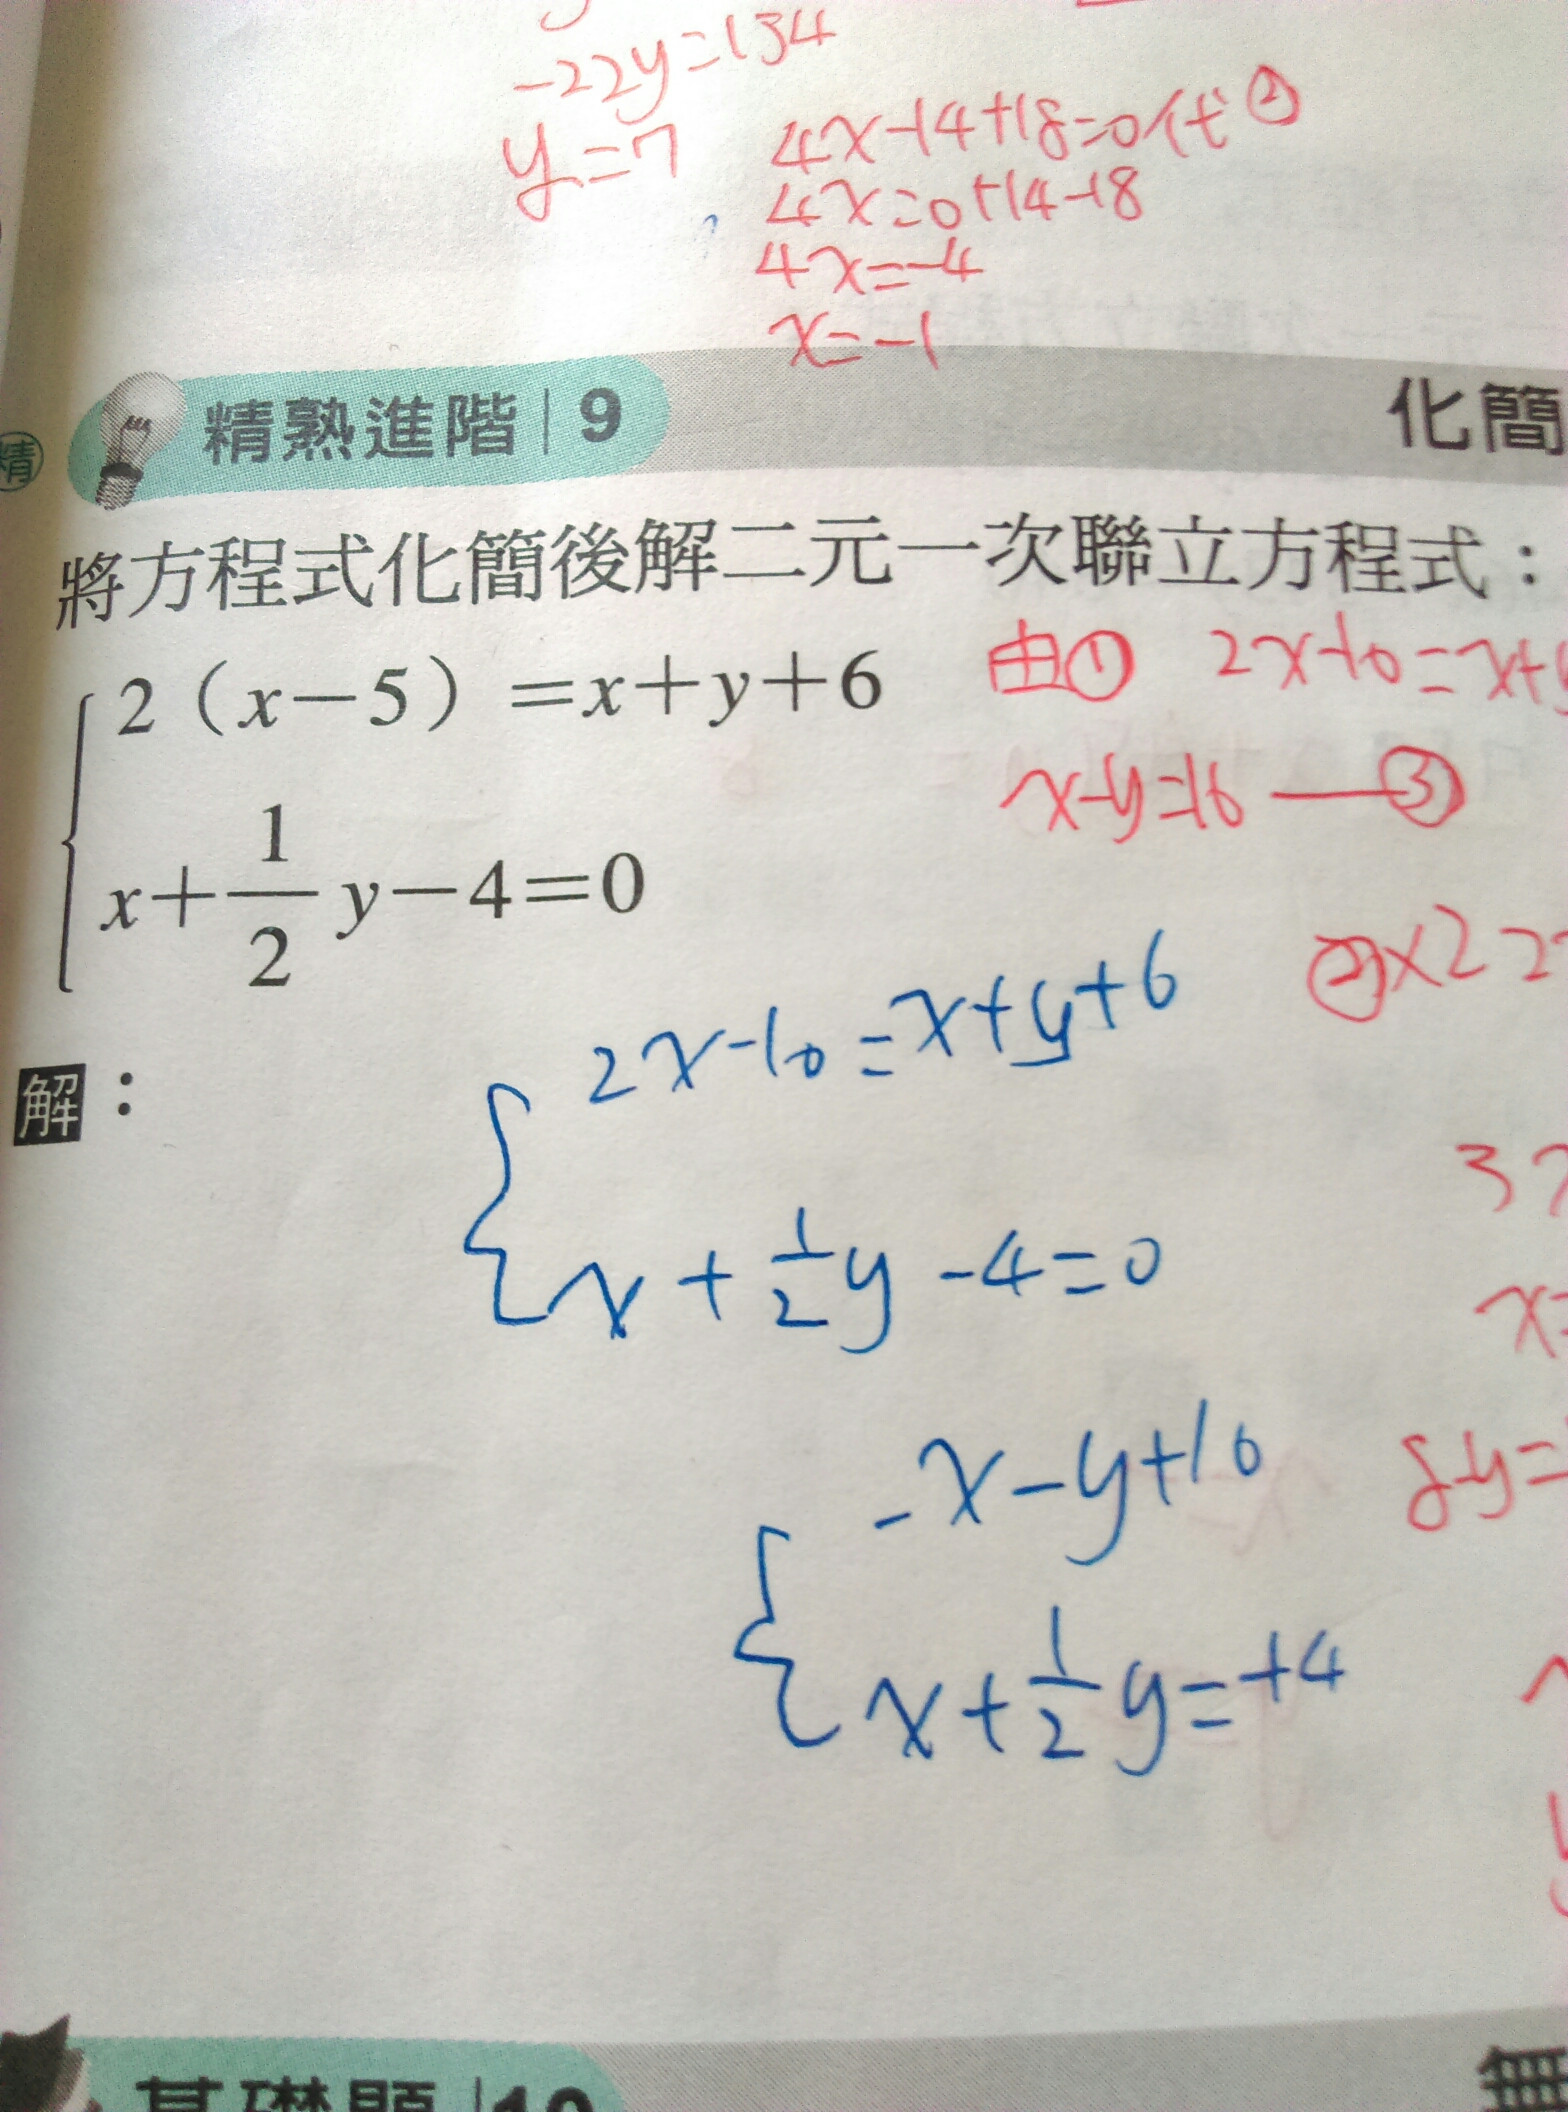 -22y=134
y=7
4x-14+18=0代②
4x=0+14-18
4x=-4
x=-1
精
精熟進階|9
化簡
將方程式化簡後解二元一次聯立方程式：
2（x－5）=x+y+6
由① 2x-10=x+y
x-y=16 —③
x+1/2 y-4=0
②×2 2
2x-10=x+y+6
解：
3
x+1/2y-4=0
x=
-x-y+16
8-y=
x+1/2y=+4
基礎題|10
無